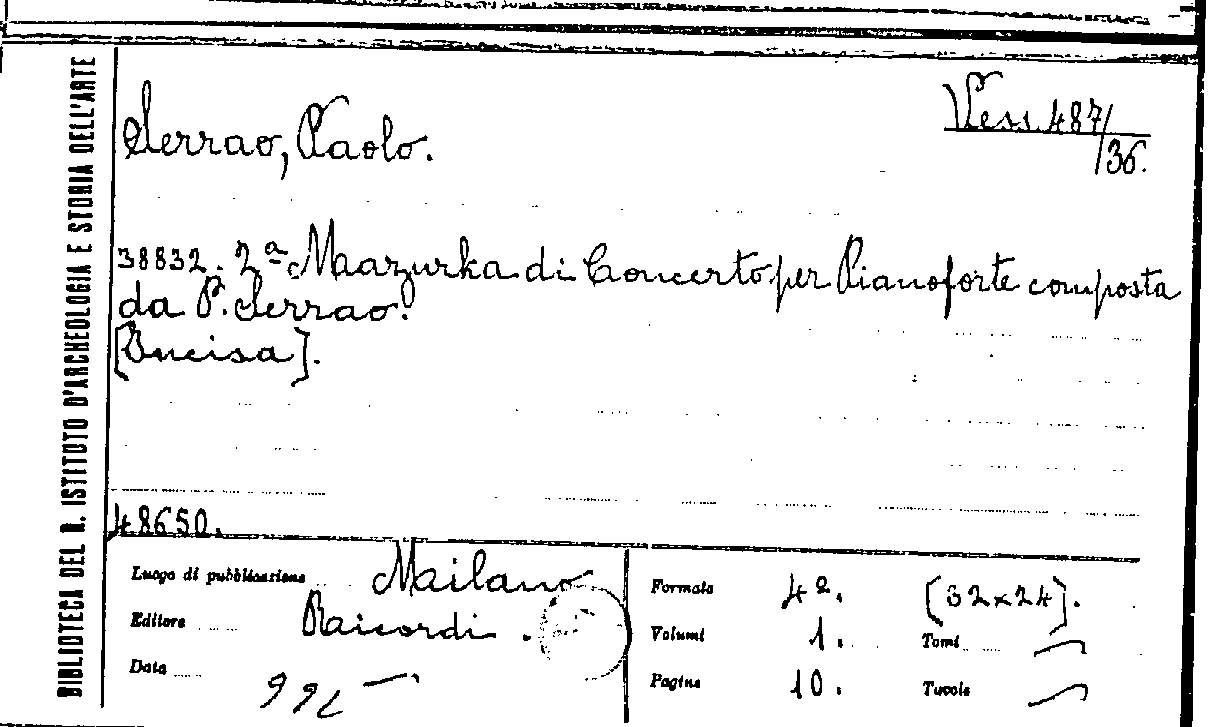 BIBLIOTECA DEL R. ISTITUTO D'ARCHEOLOGIA E STORIA DELL'ARTE
Serrao, Paolo.
Vess. 487/36.
38832. 2ª Mazurka di Concerto per Pianoforte composta
da P. Serrao.
[Incisa].
48650.
Luogo di pubblicazione Milano
Editore Ricordi.
Data
Formato 4º. [32x24].
Volumi 1. Tomi —
Pagine 10. Tavole —